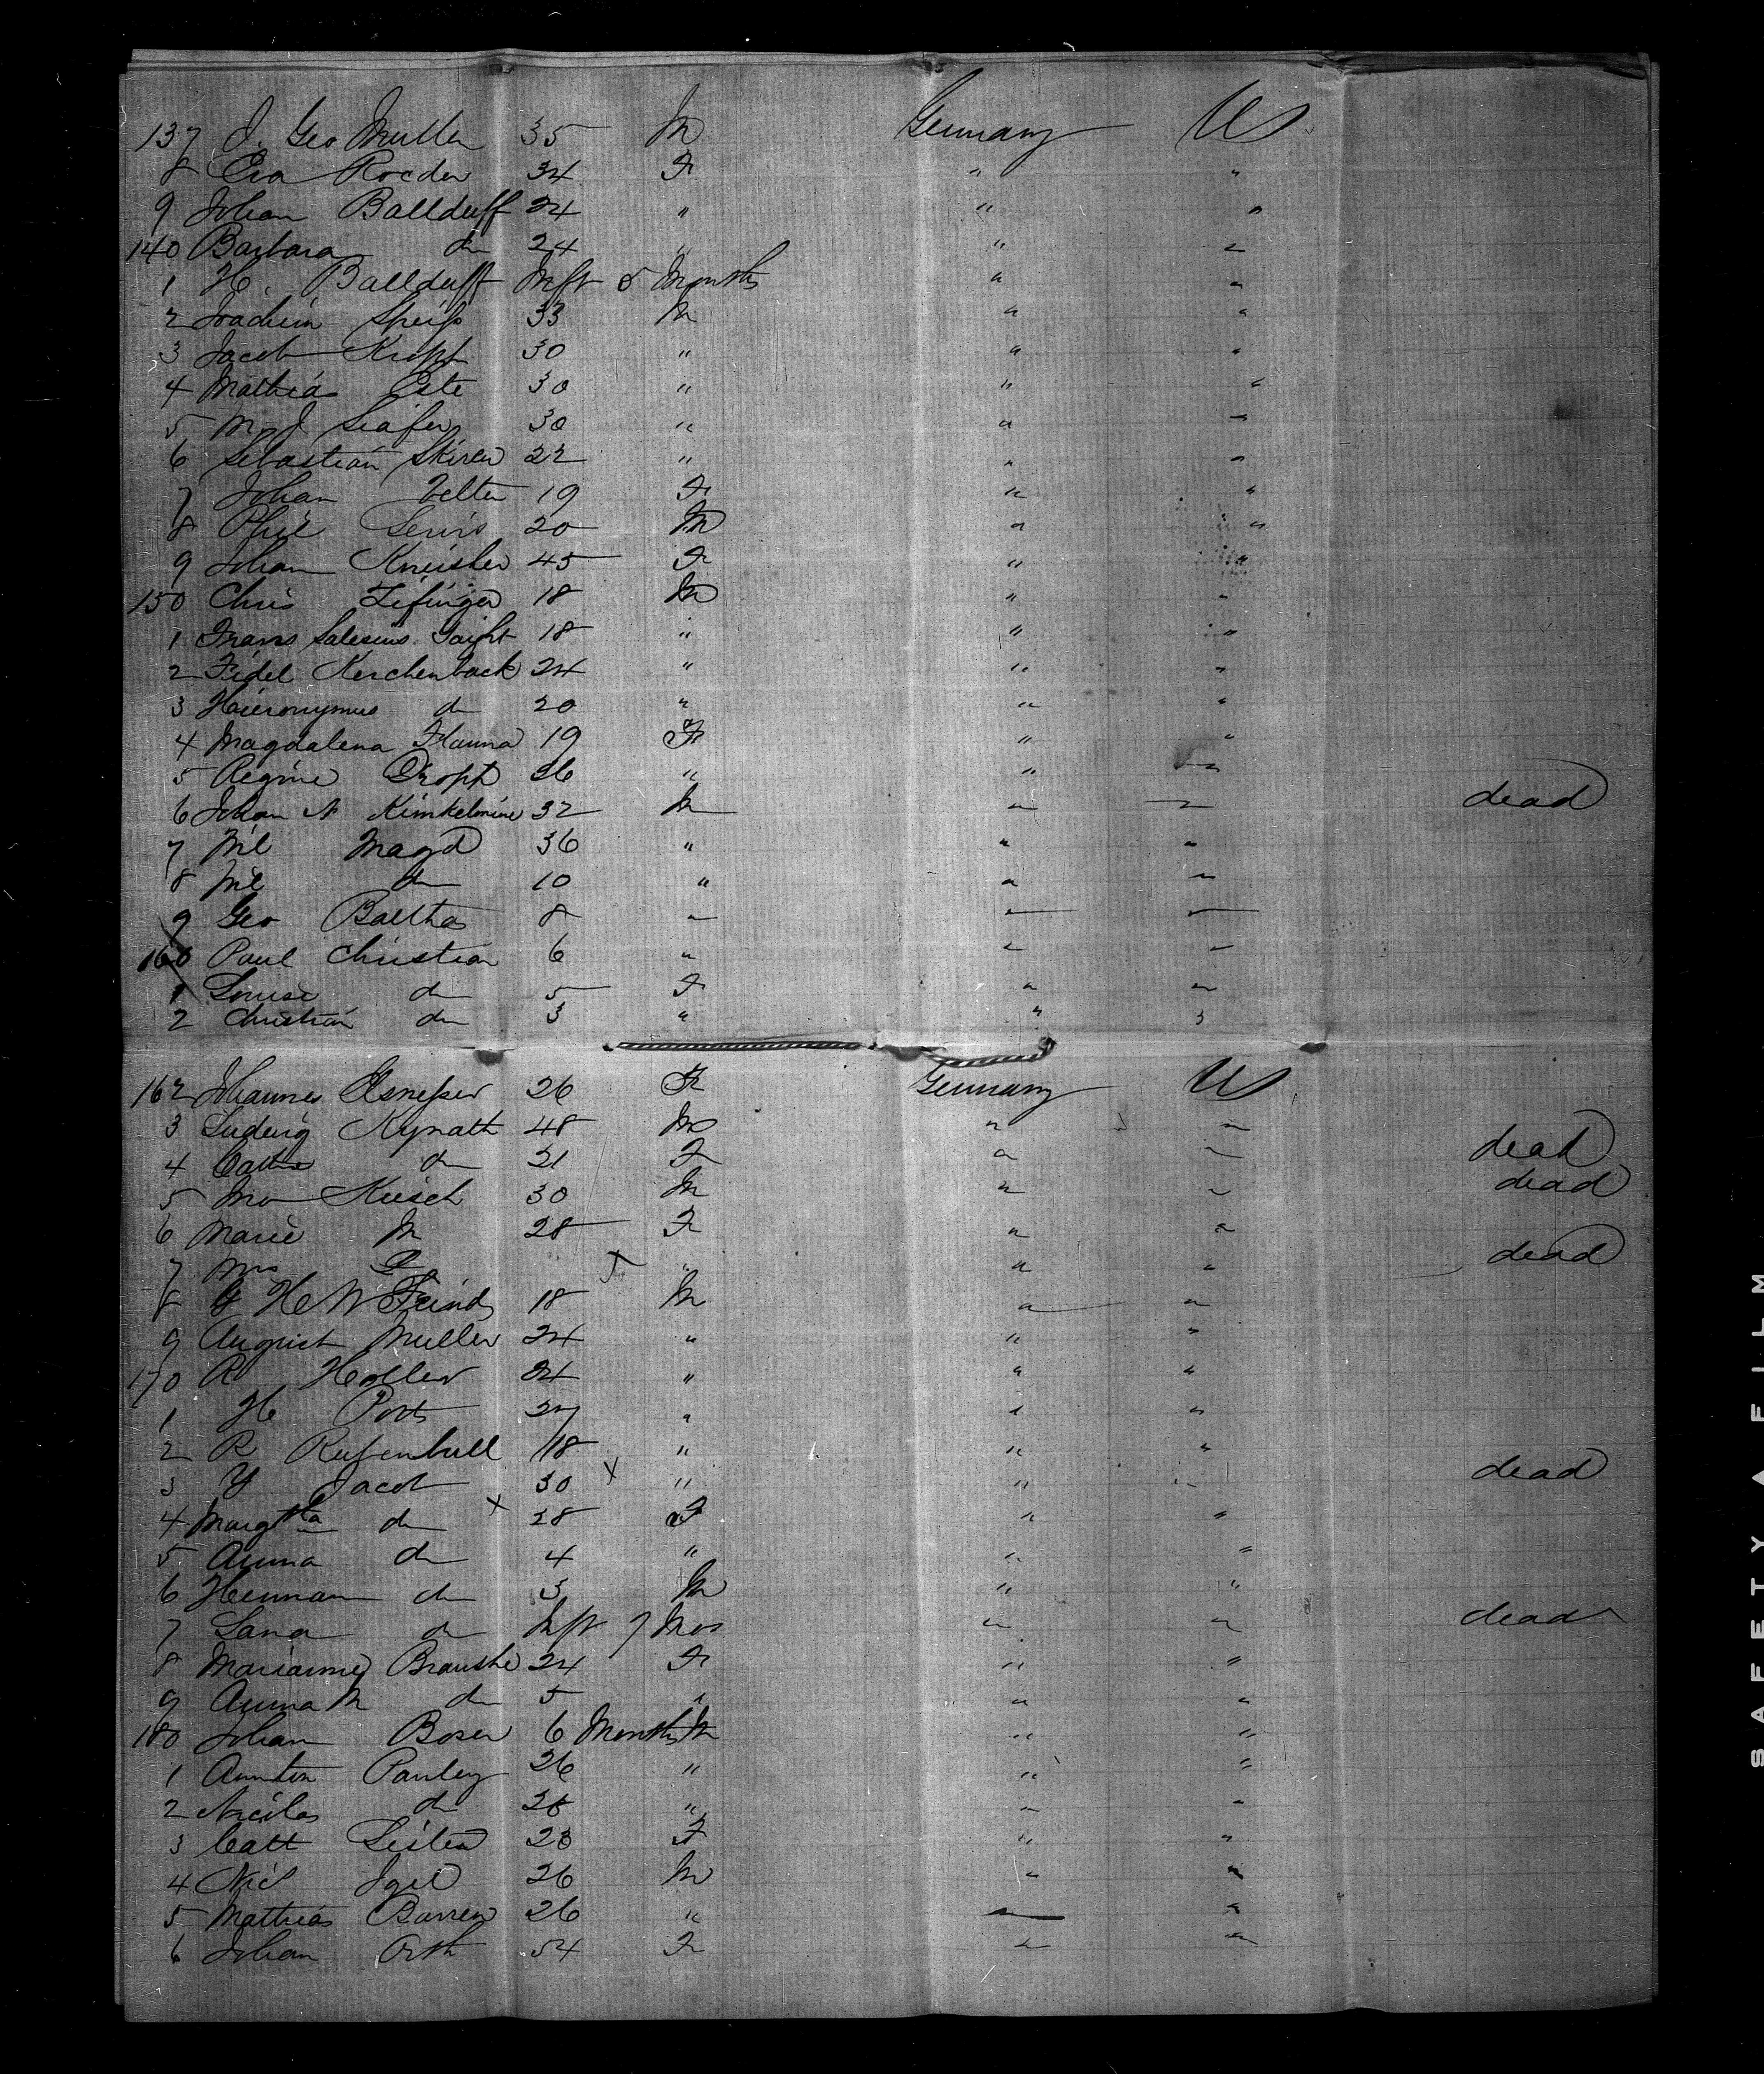 137 J. Geo Muller 35 M Germany US
8 Eva Roeder 34 F " "
9 Johan Ballduff 24 " " "
140 Barbara do 24 " " "
1 H. Ballduff Inft 5 Months " "
2 Joachim Speiß 33 M " "
3 Jacob Kropf 30 " " "
4 Mathias Este 30 " " "
5 M J Seafer 30 " " "
6 Sebastian Skirer 22 " " "
7 Johan Velten 19 F " "
8 Phil Lewis 20 M " "
9 Johan Kneisler 45 F " "
150 Chris 18 M " "
1 Frans Salesius 18 " " "
2 Fidel Kerchenback 24 " " "
3 Haieronymus do 20 " " "
4 Magdalena Hanna 19 F " "
5 Regine Dropt 26 " " "
6 Johan N 32 M " " dead
7 Magd 36 " " "
8 do 10 " " "
9 Geo Baltha 8 " " "
160 Paul Christian 6 " " "
1 Louise do 5 F " "
2 Christian do 3 " " "
162 Johannes 26 F Germany US
3 Ludwig Kynath 48 M " "
4 Cath do 21 F " " dead
5 Kiesch 30 M " " dead
6 Marie M 28 F " "
7 " " " dead
8 H W Freind 18 M " "
9 August Muller 24 " " "
170 R Holler 24 " " "
1 H Ports 27 " " "
2 R 18 " " "
3 Y Jacob 30 x " " " dead
4 Margtha do x 28 F " "
5 Anna do 4 " " "
6 Herman do 3 M " "
7 Lana do Inft 7 Mos " " dead
8 Marianne Braushe 24 F " "
9 Anna M do 5 " " "
180 Johan Boser 6 Months M " "
1 Annton Pauley 26 " " "
2 Nicolas do 28 " " "
3 Catt Leister 28 F " "
4 Nic Igel 26 M " "
5 Mathias Barren 26 " " "
6 Johan Orth 54 F " "
SAFETY ▲ FILM